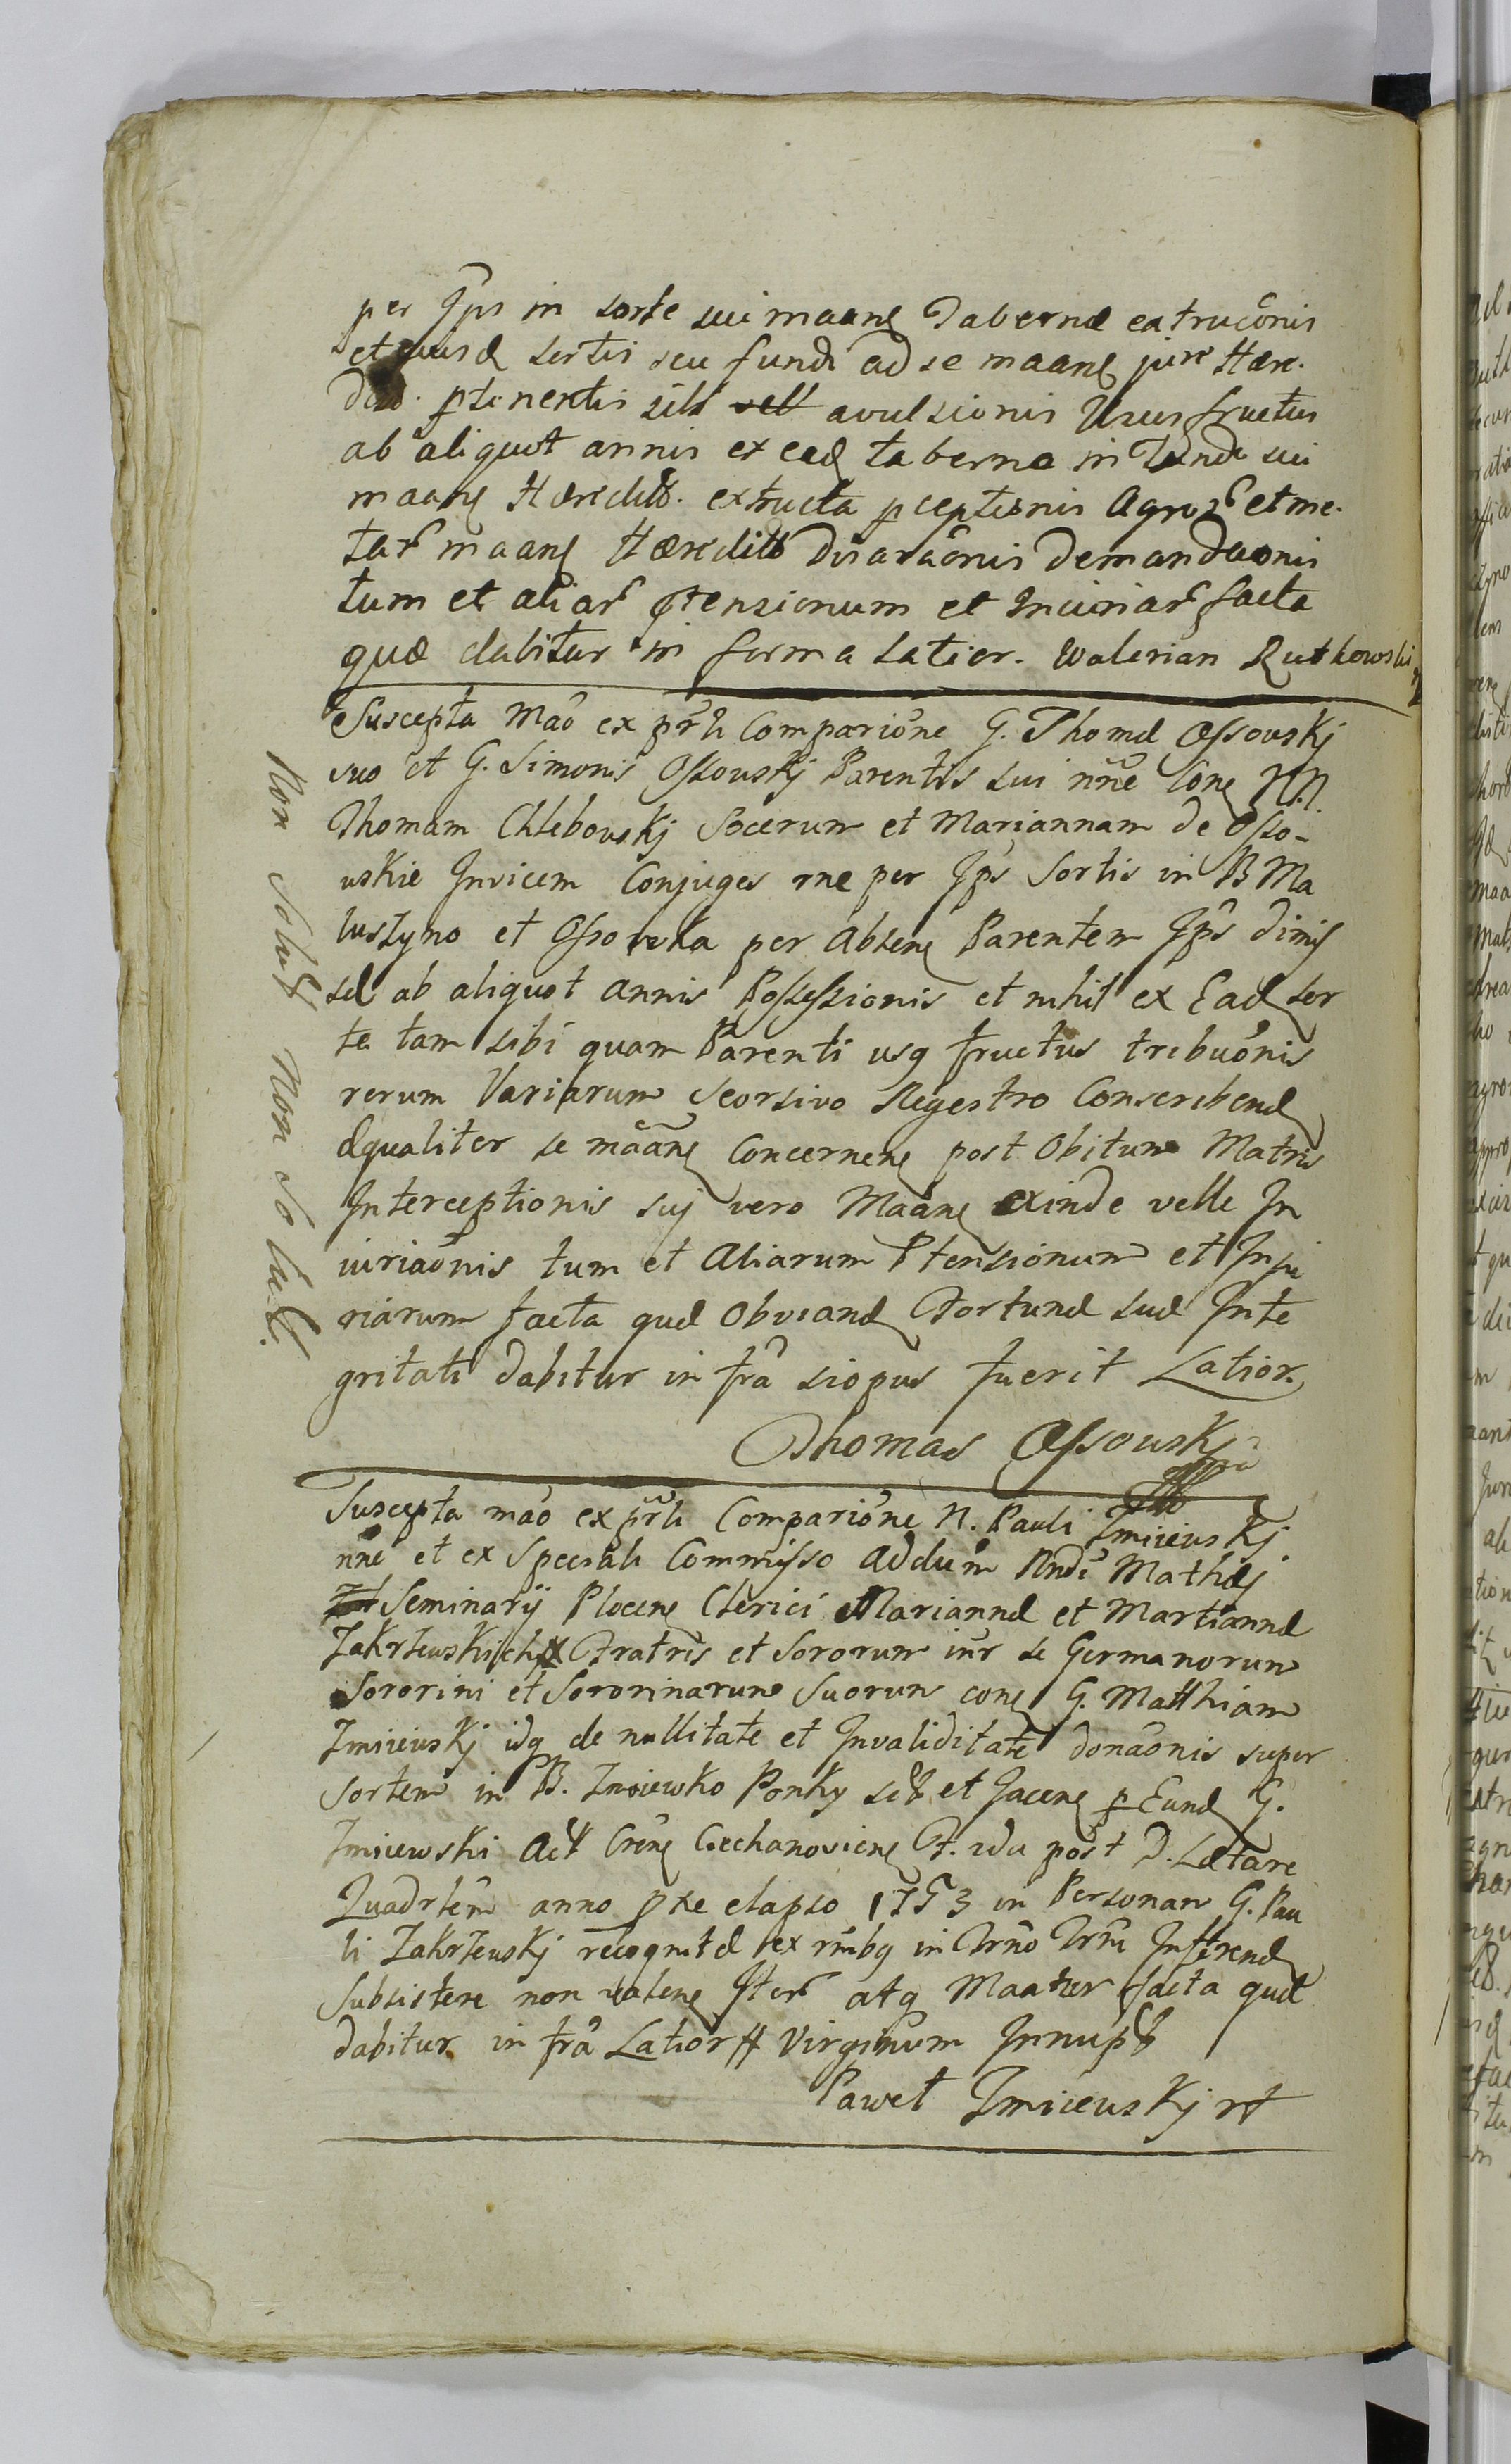 per Ips in sorte sui maane Tabernæ extrucōnis
et ejusd sortis seu fundi ad se maane jure Hære-
ptinentis sibi avulsionis Ususfructus
ab aliquot annis ex ead taberna in fundi sui
maane Hæredit. extructa pceptionis Agror et me-
tar maane Hæredit disaracōnis demandaonis
tum et aliar ptensionum et Injuriar facta
quæ dabitur in forma latior. Walerian Rutkowski
Suscepta Mão ex pr̄li Compariōne G. Thomæ Ossowskj
suo et G. Simonis Ossowskj Parentis sui nñe Cone N.N.
Thomam Chlebowskj Socerum et Mariannam de Osso-
wskie Invicem Conjuges rñe per Ips Sortis in B Ma
lustyno et Ossowka per Absene Parentem Ips dimis
sæ ab aliquot annis Possessionis et nihil ex Ead sor
te tam sibi quam Parenti usq fructus tribuōnis
rerum Variarum Seorsivo Regestro Conscribend
æqualiter se mãane Concernene post Obitum Matris
Interceptionis suj vero Maane exinde velle In
iuriaōnis tum et Aliarum Ptensionum et Inju
riarum facta quæ Obviand Fortunæ suæ Inte
gritati dabitur in frã siopus fuerit Latior.
Thomas Ossowskj
Non Solut Non Solut.
Suscepta mão ex pr̄li Compariōne N. Pauli Zmiiewskj
nñe et ex Speciali Commisso addum Rndi Mathæj
Seminarij Plocene Clerici Mariannæ et Martiannæ
Zakrzewskich Fratris et Sororum inr se Germanorum
Sororini et Sororinarum Suorum cone G. Matthiam
Zmiiewskj idq de nullitate et Invaliditate donaōnis super
sortem in B. Zmiiewko Ponky sit et Jacene p Eund G.
Zmiiewski Act Crēne Ciechanoviene F. 2da post D. Lætare
Quadrlem anno pxe elapso 1753 in Personam G. Pau
li Zakrzewskj recognitæ ex rñibq in Trño Trñi Inferend
Subsistere non valene Iter atq Maater facta quæ
dabitur in frã Latior # Virginum Innupt
Paweł Zmiiewskj